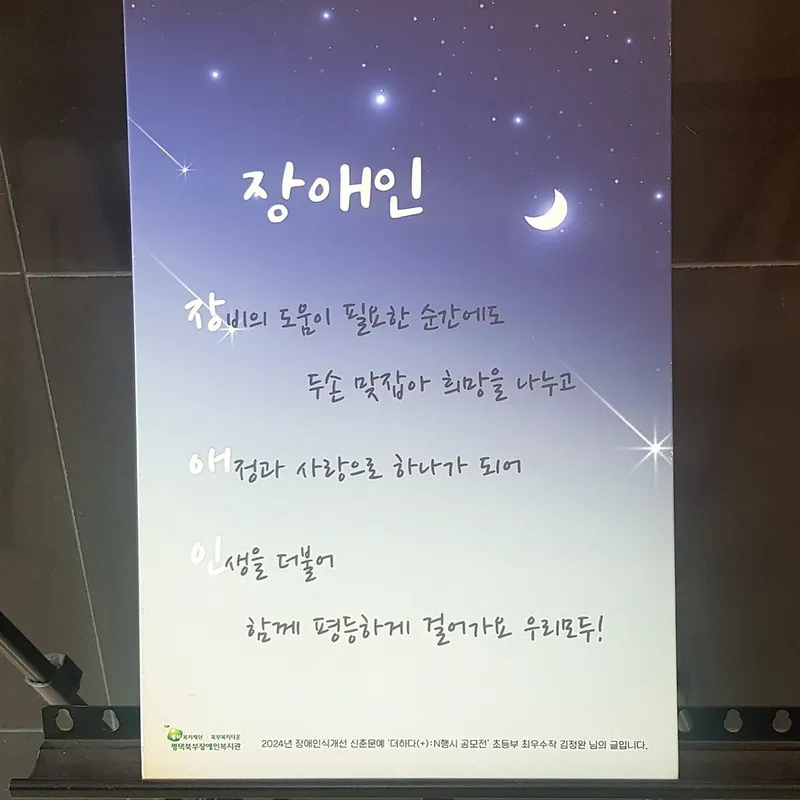 장애인
장비의 도움이 필요한 순간에도
두손 맞잡아 희망을 나누고
애정과 사랑으로 하나가 되어
인생을 더불어
함께 평등하게 걸어가요 우리모두!
복지재단 | 북부복지타운
평택북부장애인복지관
2024년 장애인식개선 신춘문예 '더하다(+):N행시 공모전' 초등부 최우수작 김정완 님의 글입니다.